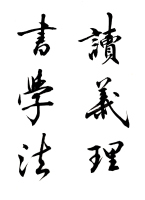 讀義理
書學法